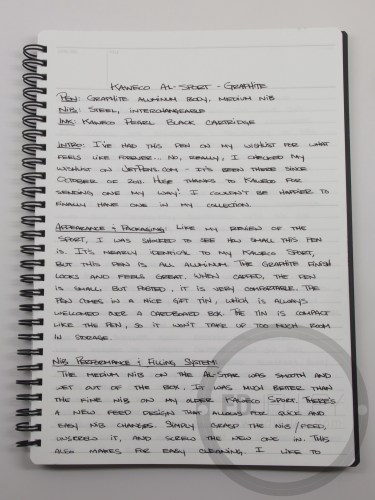 Kaweco AL-Sport - Graphite
Pen: Graphite aluminum body, medium nib
Nib: Steel, interchangeable
Ink: Kaweco Pearl Black cartridge
Intro: I've had this pen on my wishlist for what
feels like forever... No, really, I checked my
wishlist on JetPens.com - it's been there since
October of 2011. Huge thanks to Kaweco for
sending one my way! I couldn't be happier to
finally have one in my collection.
Appearance & Packaging: Like my review of the
Sport, I was shocked to see how small this pen
is. It's nearly identical to my Kaweco Sport,
but this pen is all aluminum. The graphite finish
looks and feels great. When capped, the pen
is small but posted, it is very comfortable. The
pen comes in a nice gift tin, which is always
welcomed over a cardboard box. The tin is compact
like the pen, so it won't take up too much room
in storage.
Nib Performance & Filling System:
The medium nib on the AL-Star was smooth and
wet out of the box. It was much better than
the fine nib on my older Kaweco Sport. There's
a new feed design that allows for quick and
easy nib changes. Simply grasp the nib/feed,
unscrew it, and screw the new one in. This
also makes for easy cleaning. I like to